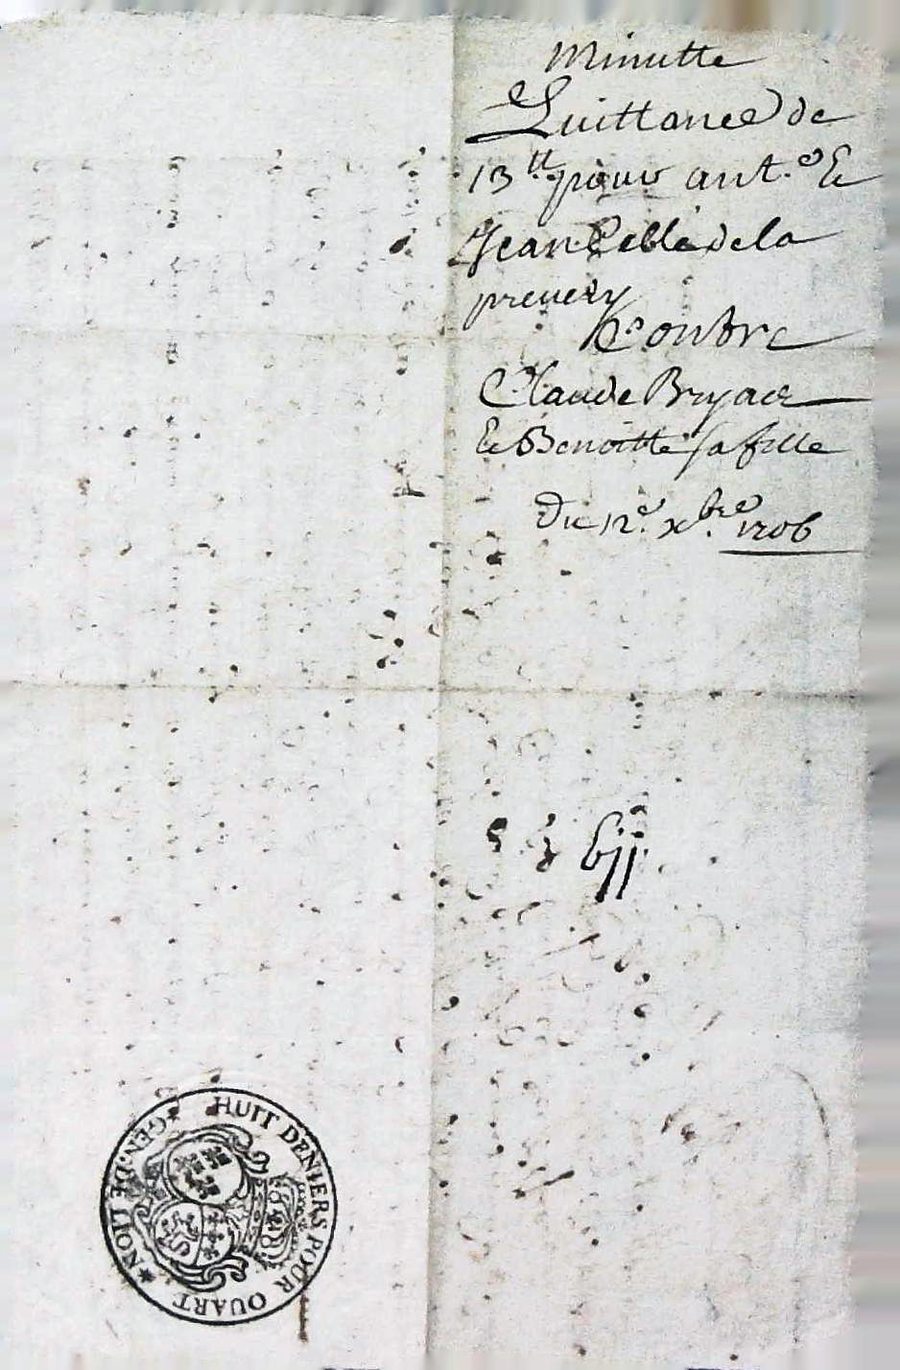 Minutte
Quittance de
13 ₶ pour ant.e &
Jean Cellé de la
preuery
Contre
Claude Bryace
& Benoitte sa fille
Du 12e xbre 1706
bjj
GEN. DE LION * HUIT DENIERS POUR QUART